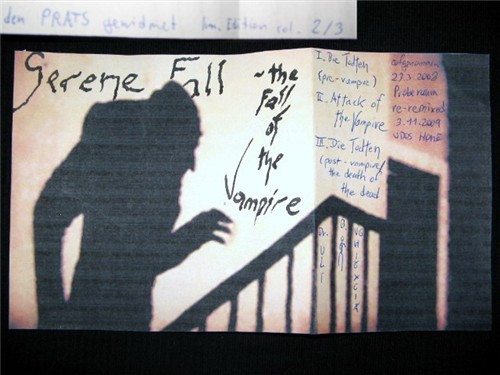 den PRATS gewidmet lim. Edition col. 2/3
Serene Fall
~ the
Fall
of
the
Vampire
I. Die Todten
(pre-vampire)
II. Attack of
the Vampire
III. Die Todten
(post-vampire/
the death of
the dead
aufgenommen
23.3.2008
Proberaum
re-remixed
3.11.2009
UDOS HOME